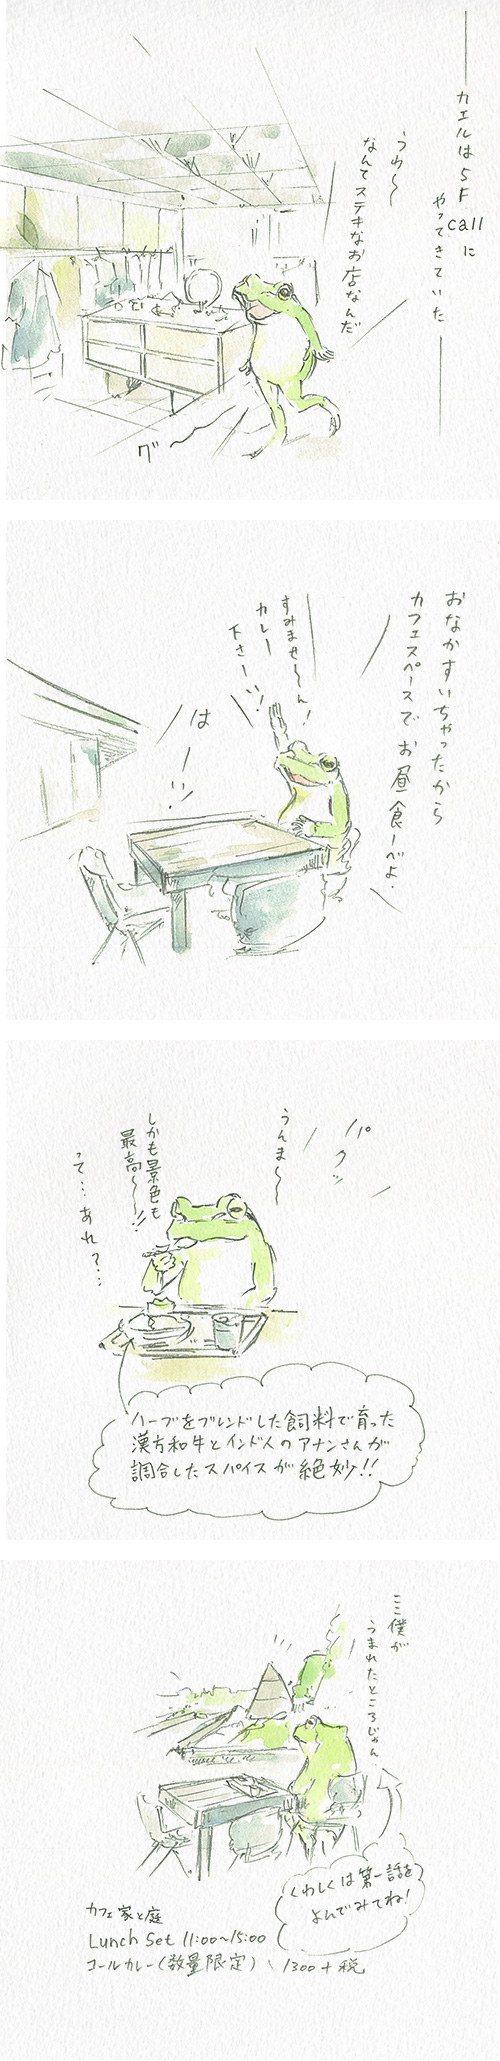 カエルは5F
callに
やってきていた
うわ〜
なんてステキなお店なんだ
グ〜
おなかすいちゃったから
カフェスペースでお昼食ーべよ.
すみませ〜ん!
カレー
下さーい!
はーい!!
パクッ
うんま〜
しかも景色も
最高〜!!
って…あれ?…
ハーブをブレンドした飼料で育った
漢方和牛とインド人のアナンさんが
調合したスパイスが絶妙!!
ここ僕が
うまれたところじゃん
くわしくは第一話を
よんでみてね!
カフェ 家と庭
Lunch Set 11:00〜15:00
コールカレー(数量限定) \1300+税